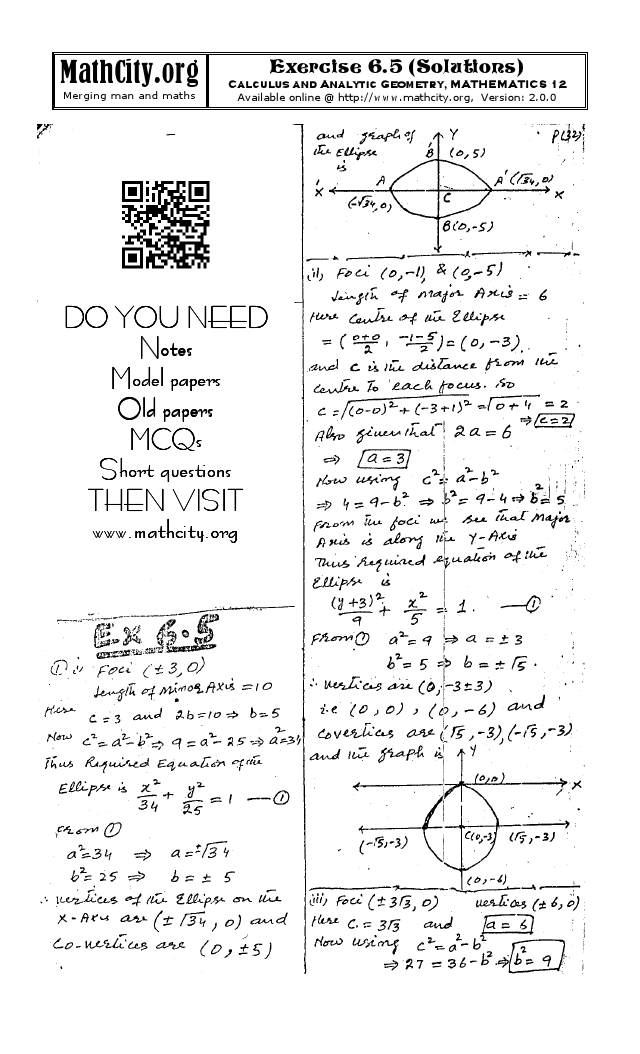 MathCity.org
Merging man and maths
Exercise 6.5 (Solutions)
CALCULUS AND ANALYTIC GEOMETRY, MATHEMATICS 12
Available online @ http://www.mathcity.org, Version: 2.0.0
DO YOU NEED
Notes
Model papers
Old papers
MCQs
Short questions
THEN VISIT
www.mathcity.org
Ex 6.5
① i) Foci (±3,0)
Length of Minor Axis = 10
Here c=3 and 2b=10 ⇒ b=5
Now c²=a²-b² ⇒ 9=a²-25 ⇒ a²=34
Thus Required Equation of the
Ellipse is x²/34 + y²/25 = 1 —①
From ①
a²=34 ⇒ a=±√34
b²=25 ⇒ b = ± 5
∴ vertices of the Ellipse on the
X-Axis are (±√34, 0) and
Co-vertices are (0, ±5)
and graph of
the Ellipse
is
P(32)
Y
B' (0,5)
A
A' (√34, 0)
X'
X
(-√34, 0)
C
B(0,-5)
(ii) Foci (0,-1) & (0,-5)
Length of Major Axis = 6
Here Centre of the Ellipse
= ((0+0)/2, (-1-5)/2) = (0, -3)
and c is the distance from the
Centre To each focus. So
c = √((0-0)² + (-3+1)²) = √(0+4) = 2
⇒ c=2
Also given that 2a = 6
⇒ a = 3
Now using c² = a²-b²
⇒ 4 = 9-b² ⇒ b² = 9-4 ⇒ b² = 5
From the foci we see that Major
Axis is along the Y-Axis
Thus Required equation of the
Ellipse is
(y+3)²/9 + x²/5 = 1. —①
From ① a² = 9 ⇒ a = ± 3
b² = 5 ⇒ b = ± √5.
∴ vertices are (0, -3±3)
i.e (0, 0), (0, -6) and
covertices are (√5, -3), (-√5, -3)
and the graph is
Y
(0,0)
X
(-√5,-3)
C(0,-3)
(√5, -3)
(0,-6)
(iii) Foci (± 3√3, 0) vertices (± 6, 0)
Here c = 3√3 and a = 6
Now using c² = a²-b²
⇒ 27 = 36-b² ⇒ b² = 9